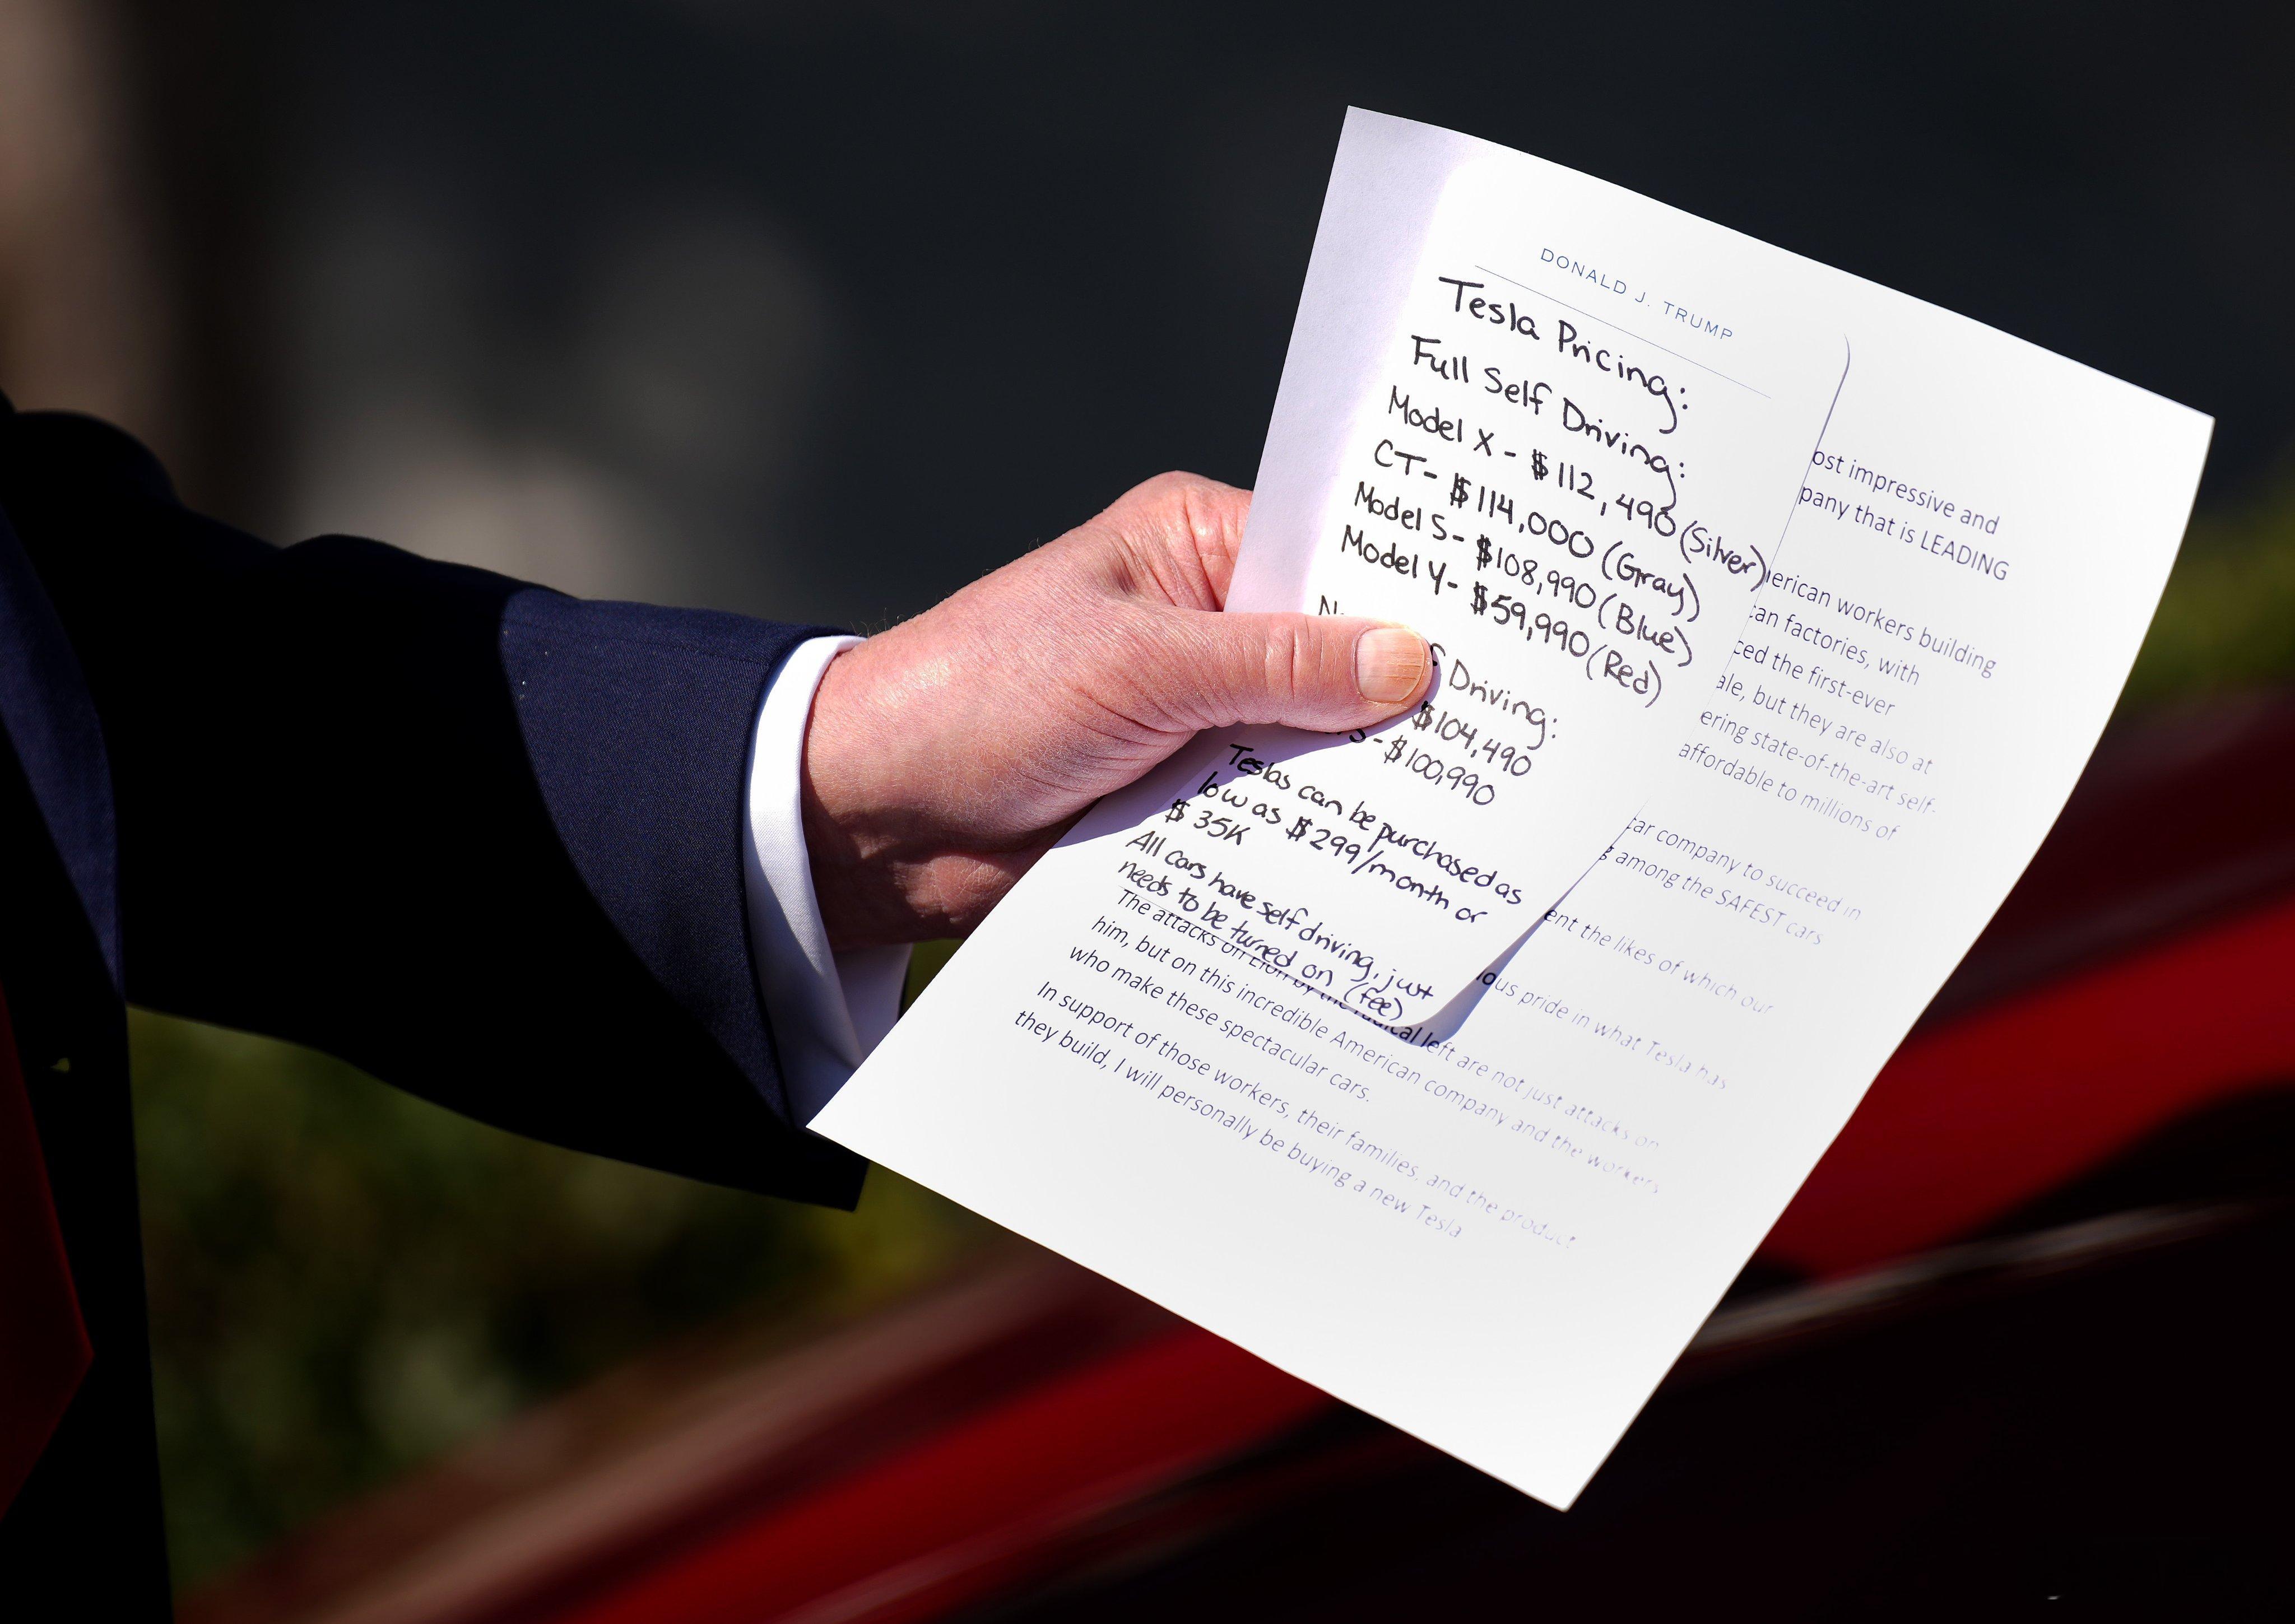 DONALD J. TRUMP
Tesla Pricing:
Full Self Driving:
Model X - $112,490 (Silver)
CT - $114,000 (Gray)
Model S - $108,990 (Blue)
Model Y - $59,990 (Red)
Driving:
$104,490
S - $100,990
Teslas can be purchased as
low as $299/month or
$35K
All cars have self driving, just
needs to be turned on (fee)
ost impressive and
pany that is LEADING
erican workers building
can factories, with
ced the first-ever
ale, but they are also at
ering state-of-the-art self-
affordable to millions of
car company to succeed in
among the SAFEST cars
ent the likes of which our
ious pride in what Tesla has
The attacks on Elon by the radical left are not just attacks on
him, but on this incredible American company and the workers
who make these spectacular cars.
In support of those workers, their families, and the product
they build, I will personally be buying a new Tesla